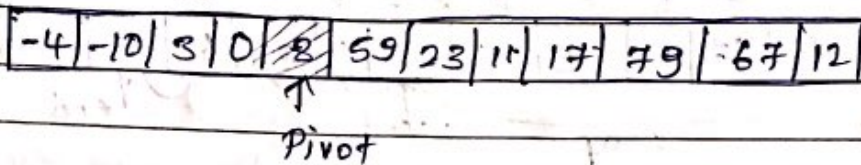 -4 -10 3 0 8 59 23 11 17 79 67 12
Pivot